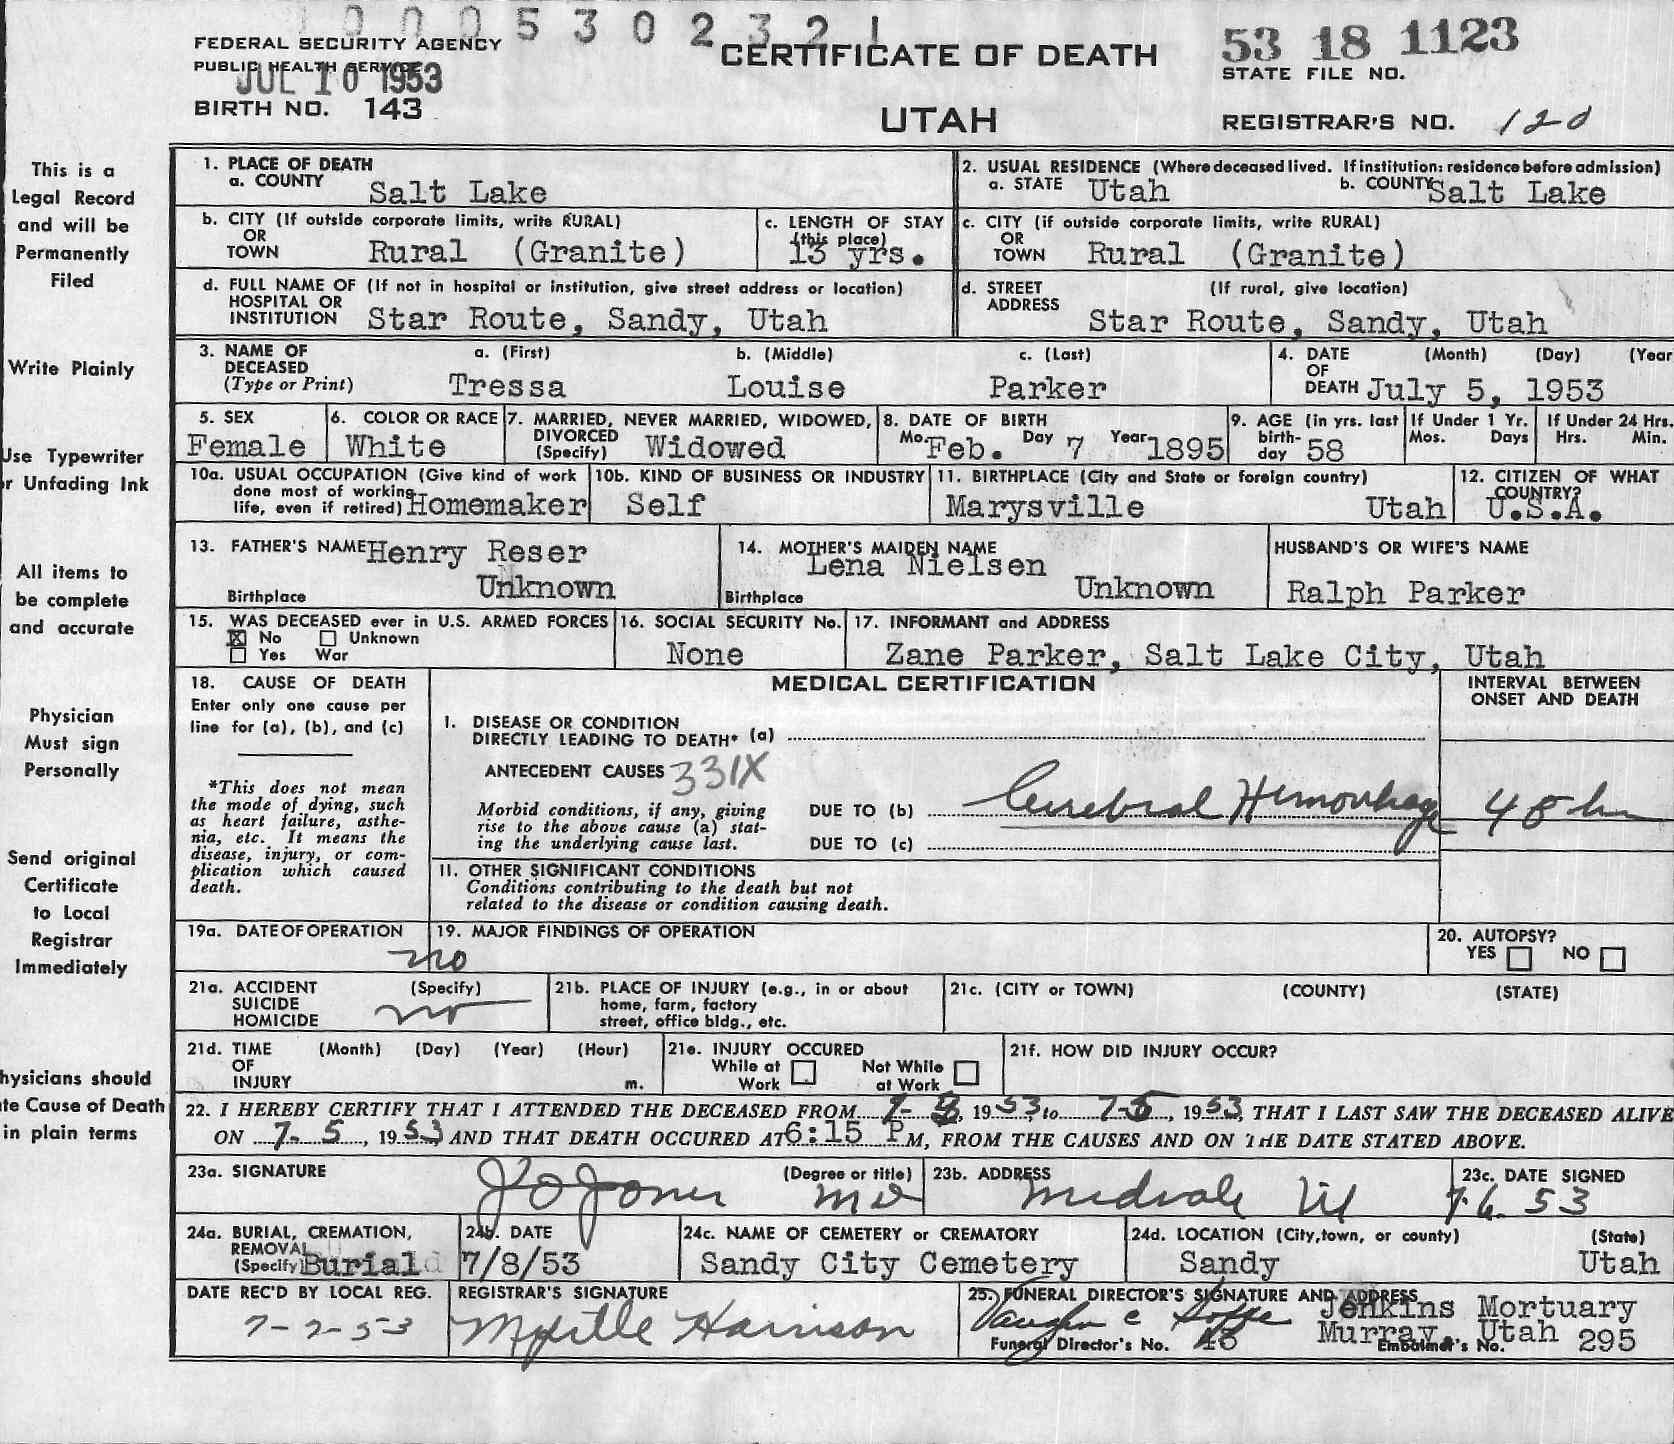 1 0 0 0 5 3 0 2 3 2 1
FEDERAL SECURITY AGENCY
PUBLIC HEALTH SERVICE
JUL 10 1953
BIRTH NO. 143
CERTIFICATE OF DEATH
UTAH
53 18 1123
STATE FILE NO.
REGISTRAR'S NO. 120
This is a
Legal Record
and will be
Permanently
Filed
Write Plainly
Use Typewriter
or Unfading Ink
All items to
be complete
and accurate
Physician
Must sign
Personally
Send original
Certificate
to Local
Registrar
Immediately
hysicians should
te Cause of Death
in plain terms
1. PLACE OF DEATH
a. COUNTY Salt Lake
2. USUAL RESIDENCE (Where deceased lived. If institution: residence before admission)
a. STATE Utah b. COUNTY Salt Lake
b. CITY (If outside corporate limits, write RURAL)
OR
TOWN Rural (Granite)
c. LENGTH OF STAY
(this place)
13 yrs.
c. CITY (if outside corporate limits, write RURAL)
OR
TOWN Rural (Granite)
d. FULL NAME OF (If not in hospital or institution, give street address or location)
HOSPITAL OR
INSTITUTION Star Route, Sandy, Utah
d. STREET (If rural, give location)
ADDRESS
Star Route, Sandy, Utah
3. NAME OF a. (First) b. (Middle) c. (Last)
DECEASED
(Type or Print) Tressa Louise Parker
4. DATE (Month) (Day) (Year
OF
DEATH July 5, 1953
5. SEX
Female
6. COLOR OR RACE
White
7. MARRIED, NEVER MARRIED, WIDOWED,
DIVORCED
(Specify) Widowed
8. DATE OF BIRTH
Mo. Feb. Day 7 Year 1895
9. AGE (in yrs. last
birth-
day 58
If Under 1 Yr.
Mos. Days
If Under 24 Hrs.
Hrs. Min.
10a. USUAL OCCUPATION (Give kind of work
done most of working
life, even if retired) Homemaker
10b. KIND OF BUSINESS OR INDUSTRY
Self
11. BIRTHPLACE (City and State or foreign country)
Marysville Utah
12. CITIZEN OF WHAT
COUNTRY?
U.S.A.
13. FATHER'S NAME Henry Reser
Birthplace Unknown
14. MOTHER'S MAIDEN NAME
Lena Nielsen
Birthplace Unknown
HUSBAND'S OR WIFE'S NAME
Ralph Parker
15. WAS DECEASED ever in U.S. ARMED FORCES
X No Unknown
Yes War
16. SOCIAL SECURITY No.
None
17. INFORMANT and ADDRESS
Zane Parker, Salt Lake City, Utah
18. CAUSE OF DEATH
Enter only one cause per
line for (a), (b), and (c)
*This does not mean
the mode of dying, such
as heart failure, asthe-
nia, etc. It means the
disease, injury, or com-
plication which caused
death.
MEDICAL CERTIFICATION
INTERVAL BETWEEN
ONSET AND DEATH
I. DISEASE OR CONDITION
DIRECTLY LEADING TO DEATH* (a)
ANTECEDENT CAUSES 331X
Morbid conditions, if any, giving
rise to the above cause (a) stat-
ing the underlying cause last.
DUE TO (b) Cerebral Hemorrhage 48 hr
DUE TO (c)
11. OTHER SIGNIFICANT CONDITIONS
Conditions contributing to the death but not
related to the disease or condition causing death.
19a. DATE OF OPERATION
no
19. MAJOR FINDINGS OF OPERATION
20. AUTOPSY?
YES NO
21a. ACCIDENT (Specify)
SUICIDE
HOMICIDE no
21b. PLACE OF INJURY (e.g., in or about
home, farm, factory
street, office bldg., etc.
21c. (CITY or TOWN) (COUNTY) (STATE)
21d. TIME (Month) (Day) (Year) (Hour)
OF
INJURY m.
21e. INJURY OCCURED
While at Not While
Work at Work
21f. HOW DID INJURY OCCUR?
22. I HEREBY CERTIFY THAT I ATTENDED THE DECEASED FROM 7- , 1953, to 7-5, 1953, THAT I LAST SAW THE DECEASED ALIVE
ON 7-5, 1953 AND THAT DEATH OCCURED AT 6:15 PM, FROM THE CAUSES AND ON THE DATE STATED ABOVE.
23a. SIGNATURE (Degree or title)
J O Jones MD
23b. ADDRESS
Midvale Ut
23c. DATE SIGNED
7.6.53
24a. BURIAL, CREMATION,
REMOVAL
(Specify) Burial
24b. DATE
7/8/53
24c. NAME OF CEMETERY or CREMATORY
Sandy City Cemetery
24d. LOCATION (City,town, or county) (State)
Sandy Utah
DATE REC'D BY LOCAL REG.
7-7-53
REGISTRAR'S SIGNATURE
Myrtle Harrison
25. FUNERAL DIRECTOR'S SIGNATURE AND ADDRESS
Vaughn C Jenkins Mortuary
Murray, Utah
Funeral Director's No. Embalmer's No. 295